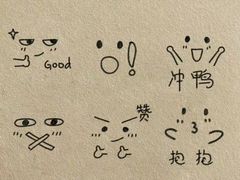 Good
!
冲鸭
赞
3
抱抱